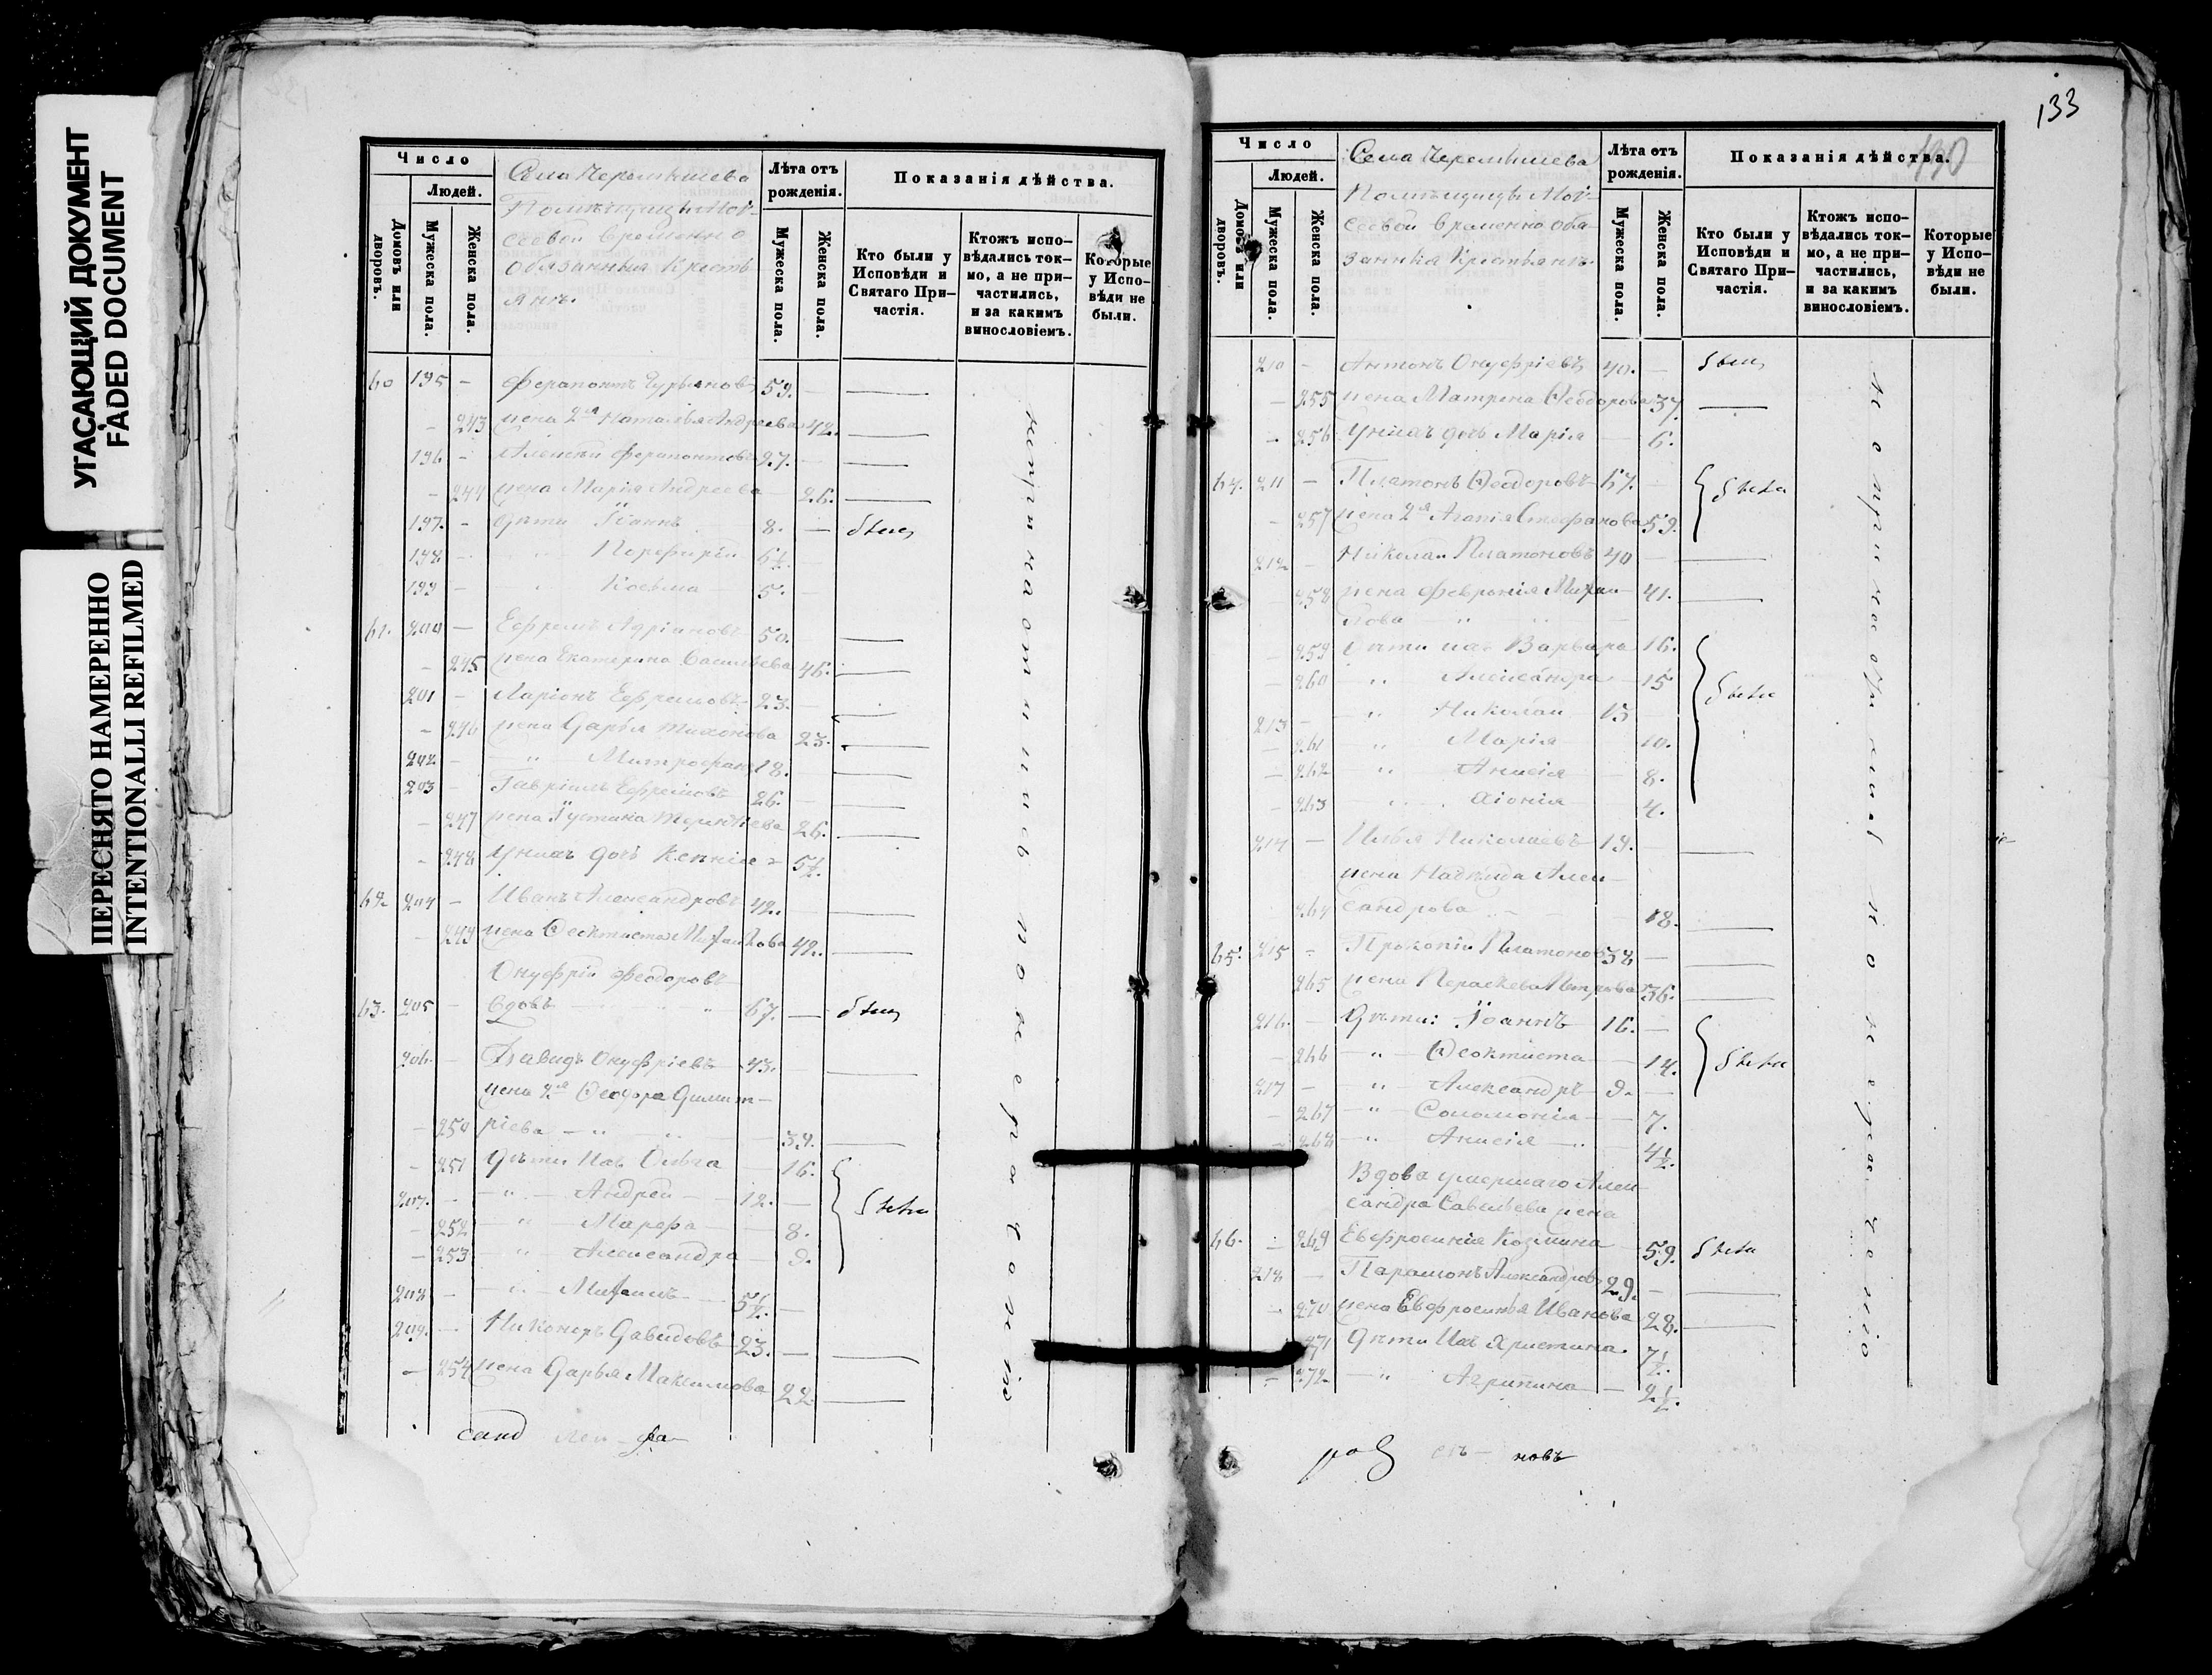 УГАСАЮЩИЙ ДОКУМЕНТ
FADED DOCUMENT
ПЕРЕСНЯТО НАМЕРЕННО
INTENTIONALLI REFILMED
Число
Людей.
Домовъ или дворовъ.
Мужеска пола.
Женска пола.
Села Черемышево
Помѣщицы Мой-
сеевой временно
обязанныя кресть-
янъ.
Лѣта отъ рожденія.
Мужеска пола.
Женска пола.
Показанія дѣйства.
Кто были у Исповѣди и Святаго При-
частія.
Ктожъ испо-
вѣдались ток-
мо, а не при-
частились, и за какимъ винословіемъ.
Которые у Испо-
вѣди не были.
60 195 - Ферапонтъ Гурьяновъ 59. -
- 243 жена 2я Наталья Андреева 42.
196 - Алексѣй Ферапонтовъ 27. -
- 244 жена Марія Андреева 26.
197. - дѣти Іоаннъ 8. - былъ
198 - " Порфирій 6½ -
199 - " Косьма 5. -
61. 200 - Ефремъ Адріановъ 50.
- 245 жена Екатерина Васильева 46.
201 - Ларіонъ Ефремовъ 23. -
- 246 жена Дарья Тихонова 23.
202 - " Митрофанъ 18.
203 - Гавріилъ Ефремовъ 26. -
- 247 жена Іустина 26.
- 248 у нихъ дочь Ксенія 5½.
62 204 - Иванъ Александровъ 42. -
- 249 жена Ѳеоктиста Михайлова 42.
Онуфрій Феодоровъ
63. 205 - вдовъ 67. - былъ
206 - Давидъ Онуфріевъ 43.
жена 2я Ѳеодора Димит-
- 250 ріева - " " 39.
- 251 дѣти ихъ Ольга - 16.
207. - " - Андрей - 12. -
- 252 " Марфа 8.
- 253 " Александра 9.
были
208 - " - Михаилъ 5½. -
209. - Никаноръ Давидовъ 23. -
- 254 жена Дарья Максимова 22.
133
130
Число
Людей.
Домовъ или дворовъ.
Мужеска пола.
Женска пола.
Села Черемышева
Помѣщицы Мой-
сеевой временно обя-
занныя Крестьянъ.
Лѣта отъ рожденія.
Мужеска пола.
Женска пола.
Показанія дѣйства.
Кто были у Исповѣди и Святаго При-
частія.
Ктожъ испо-
вѣдались ток-
мо, а не при-
частились, и за какимъ винословіемъ.
Которые у Испо-
вѣди не были.
210 - Антонъ Онуфріевъ 40. - былъ
- 255 жена Матрена Ѳеодорова 37
- 256 у нихъ дочь Марія 6.
64. 211 - Платонъ Ѳеодоровъ 67.
- 257 жена 2я Агапія Стефанова 59.
были
212 - Николай Платоновъ 40 -
258 жена Февронія Михай-
лова 41.
- 259 дѣти ихъ Варвара 16.
- 260 " Александра 15
213 - " Николай 13
- 261 " Марія 10.
- 262 " Анисія 8.
- 263 " Хіонія 4.
были
214 - Илья Николаевъ 19.
жена Надежда Алек-
264 сандрова 18.
65. 215 - Прокопій Платоновъ 38 -
265 жена Параскева Петрова 36.
216. - Дѣти: Іоаннъ 16. -
- 266 - " - Ѳеоктиста - 14.
217 - " - Александръ 9. -
- 267 - " - Соломонія 7.
- 268 - " Анисія - 4½.
были
Вдова умершаго Алек-
сандра Савельева жена
66. - 269 Евфросинія Козмина 59. была
218 - Парамонъ Александровъ 29. -
- 270 жена Евфросинья Иванова 28.
271 дѣти ихъ Христина. 7½.
- 272 - " Агрипина - 2½.
новъ